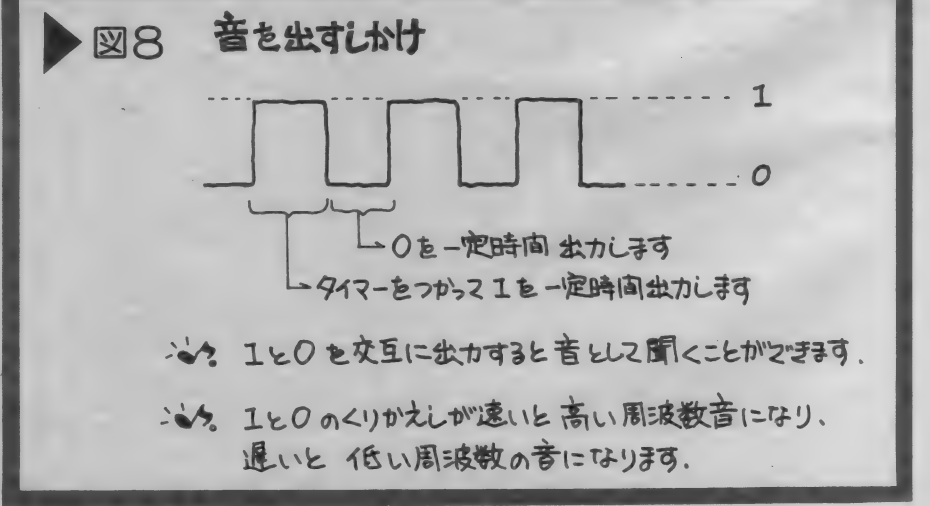 ▶図8 音を出すしかけ
1
0
0を一定時間出力します
タイマーをつかって1を一定時間出力します
1と0を交互に出力すると音として聞くことができます.
1と0のくりかえしが速いと高い周波数音になり、
遅いと 低い周波数の音になります.